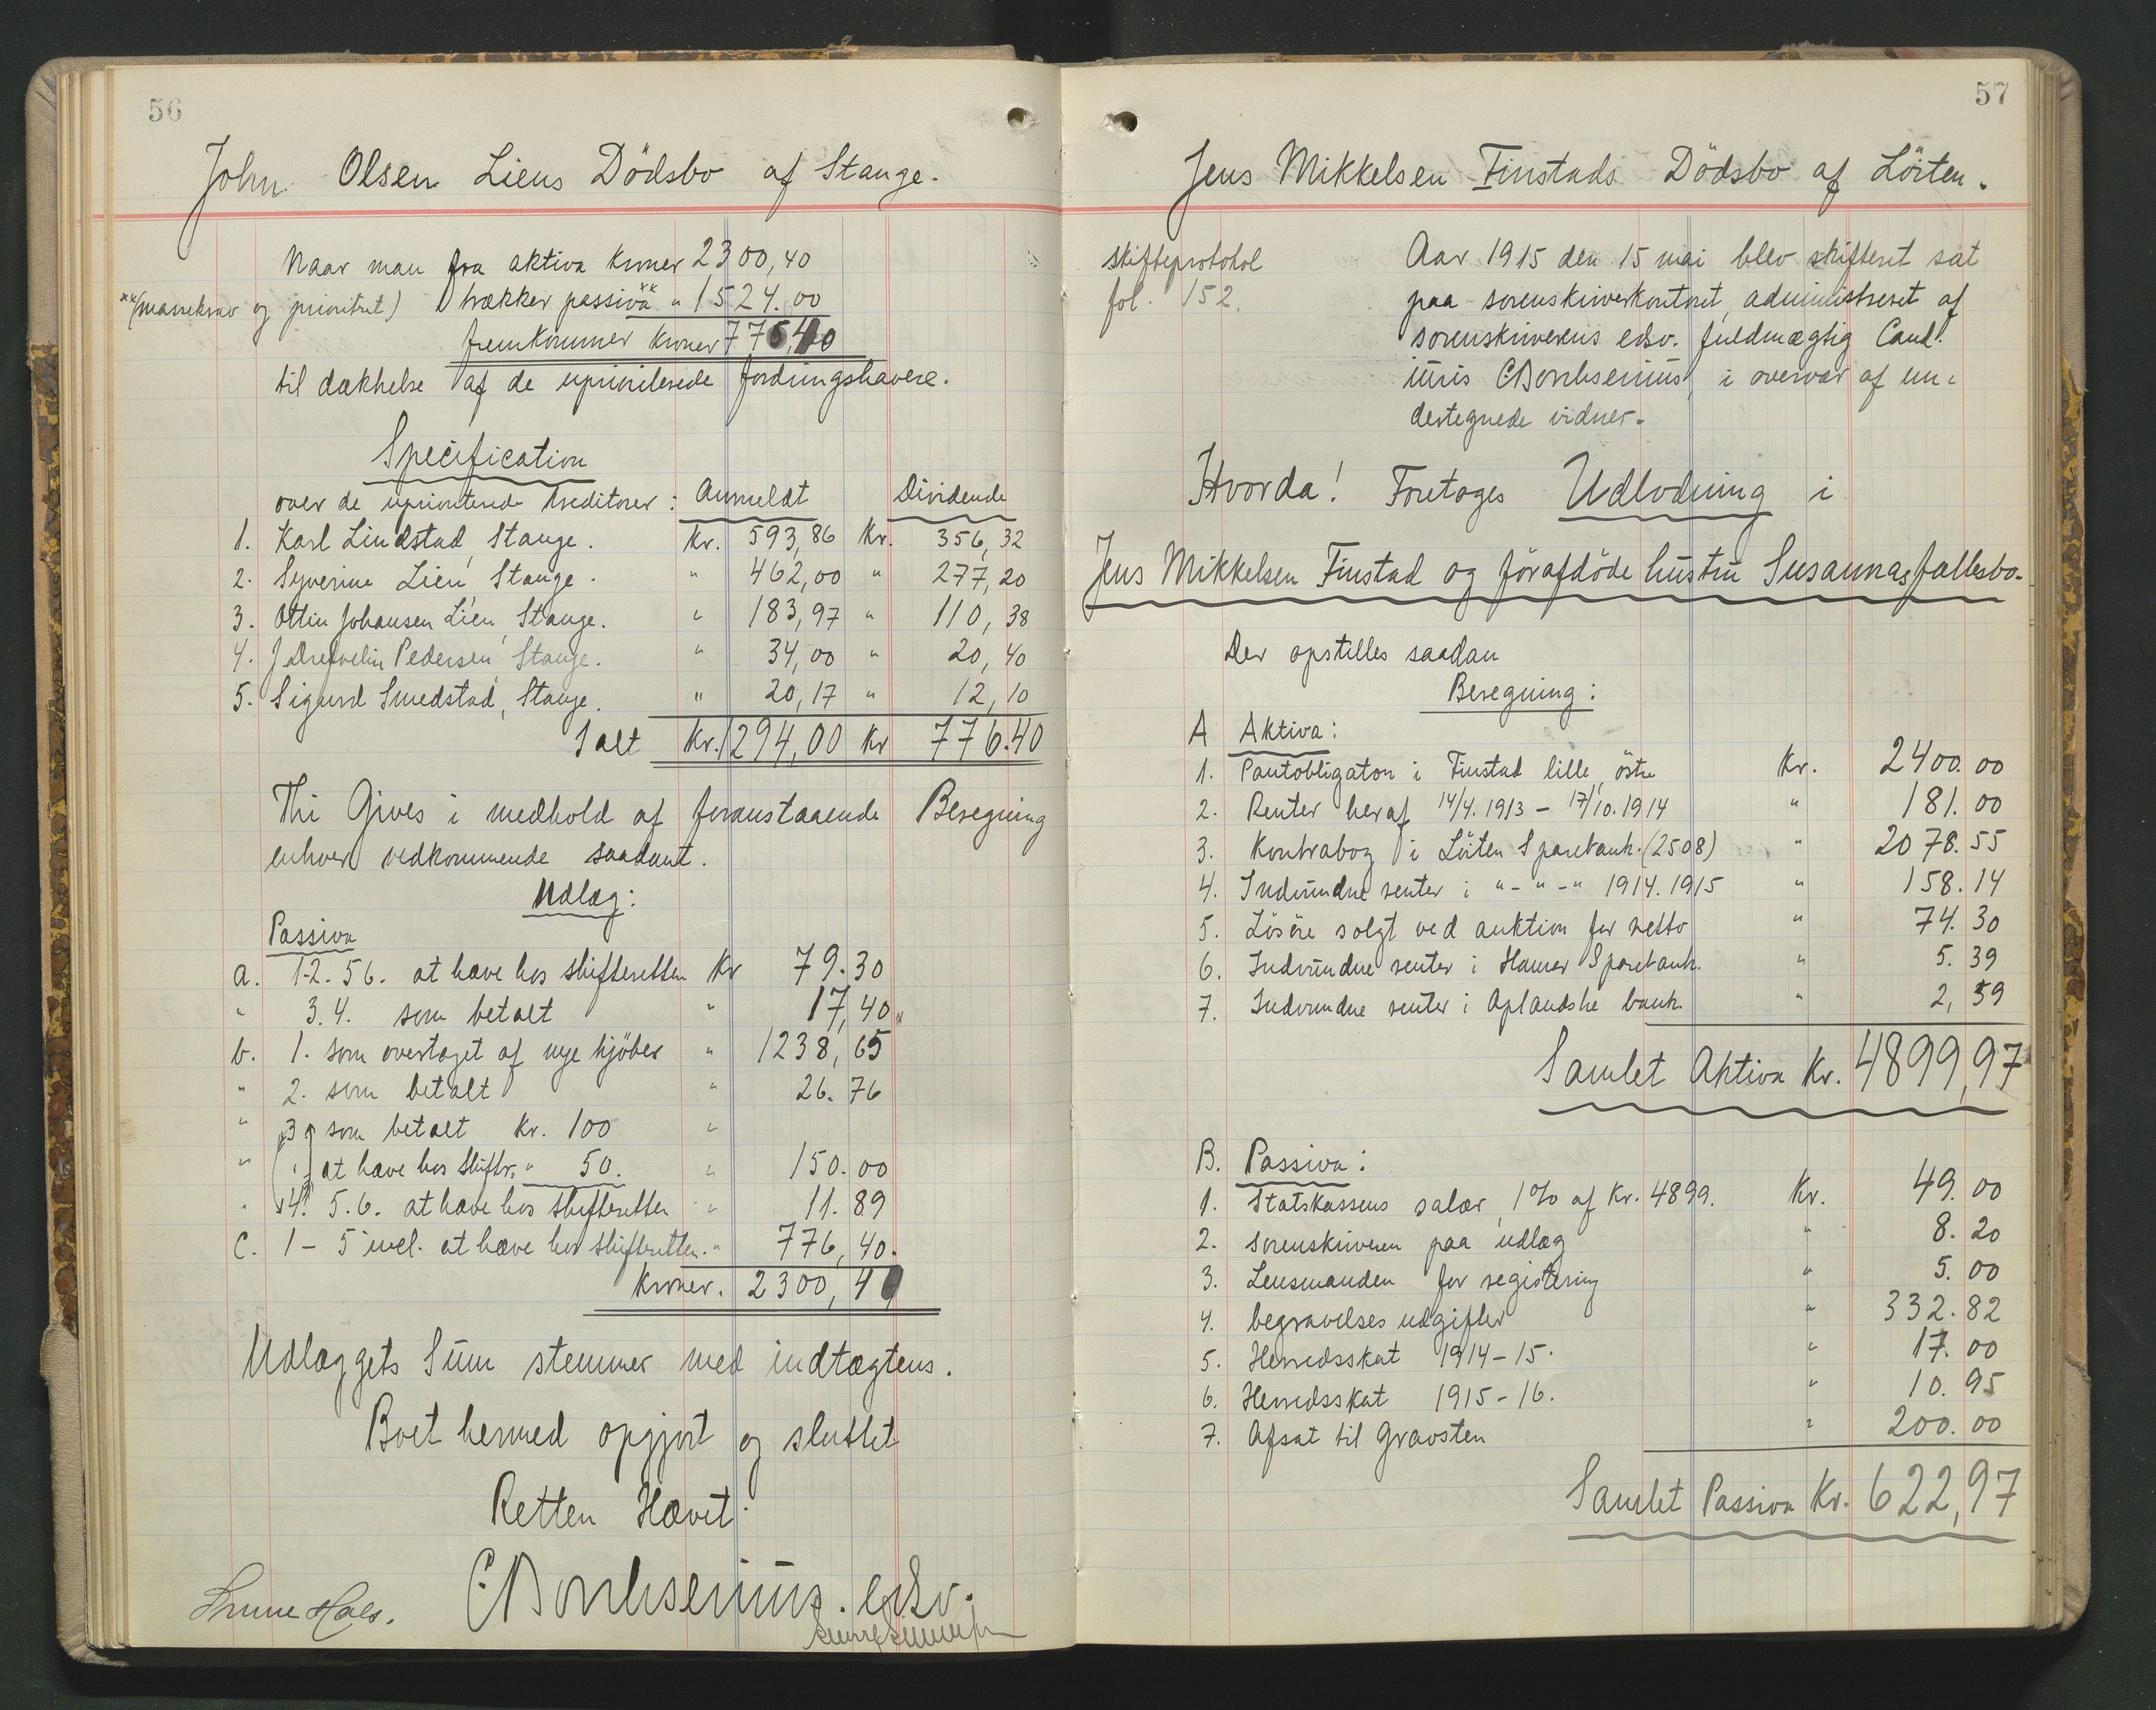 56
John Olsen Liens Dödsbo af Stange.
Naar man fra aktiva Kroner 2300,40
**(massekrav og prioritet) trækker passiva** " 1524.00
fremkommer Kroner 776,40
til dækkelse af de uprioriterede fordringshavere.
Specification
over de uprioriterede Kreditorer: Anmeldt Dividende
1. Karl Lindstad, Stange. Kr. 593,86 Kr. 356,32
2. Syverine Lien, Stange. " 462,00 " 277,20
3. Ottin Johansen Lien, Stange. " 183,97 " 110,38
4. Pedersen, Stange. " 34,00 " 20,40
5. Sigurd Smedstad, Stange. " 20,17 " 12,10
Ialt Kr. 1294,00 Kr 776.40
Thi Gives i medhold af foranstaaende Beregning
enhver vedkommende saadant.
Udlæg:
Passiva
a. 1-2. 56. at hæve hos skifteretten Kr 79.30
" 3.4. som betalt " 17,40
b. 1. som overtaget af nye kjöber " 1238,65
" 2. som betalt " 26.76
" 3 som betalt Kr. 100 "
" at hæve hos skiftr. " 50. " 150.00
" 4. 5.6. at hæve hos skifteretten " 11.89
C. 1-5 incl. at hæve hos skifteretten. " 776,40.
Kroner. 2300,40
Udlæggets Sum stemmer med indtægtens.
Boet hermed opgjort og sluttet
Retten Hævet.
edsv.
57
Jens Mikkelsen Finstads Dödsbo af Löiten.
Skifteprotokol
fol. 152.
Aar 1915 den 15 mai blev skifteret sat
paa sorenskriverkontoret, administreret af
sorenskriverens edsv. fuldmægtig Cand.
iuris i overvær af un-
dertegnede vidner.
Hvorda! Foretoges Udlodning i
Jens Mikkelsen Finstad og förafdöde hustru Susannas fællesbo.
Der opstilles saadan
Beregning:
A Aktiva:
1. Pantobligaton i Finstad lille, östre Kr. 2400.00
2. Renter heraf 14/4.1913 - 17/10.1914 " 181.00
3. Kontrabog i Löiten Sparebank. (2508) " 2078.55
4. Indvundne renter i "-"-" 1914.1915 " 158.14
5. Lösöre solgt ved auktion for netto " 74.30
6. Indvundne renter i Hamar Sparebank. " 5.39
7. Indvundne renter i Oplandske bank. " 2,59
Samlet Aktiva Kr. 4899,97
B. Passiva:
1. Statskassens salær, 1% af Kr. 4899. Kr. 49.00
2. Sorenskriveren paa udlæg " 8.20
3. Lensmanden for registering " 5.00
4. begravelses udgifter " 332.82
5. Herredsskat 1914-15. " 17.00
6. Herredsskat 1915-16. " 10.95
7. Afsat til Gravsten " 200.00
Samlet Passiva Kr. 622,97